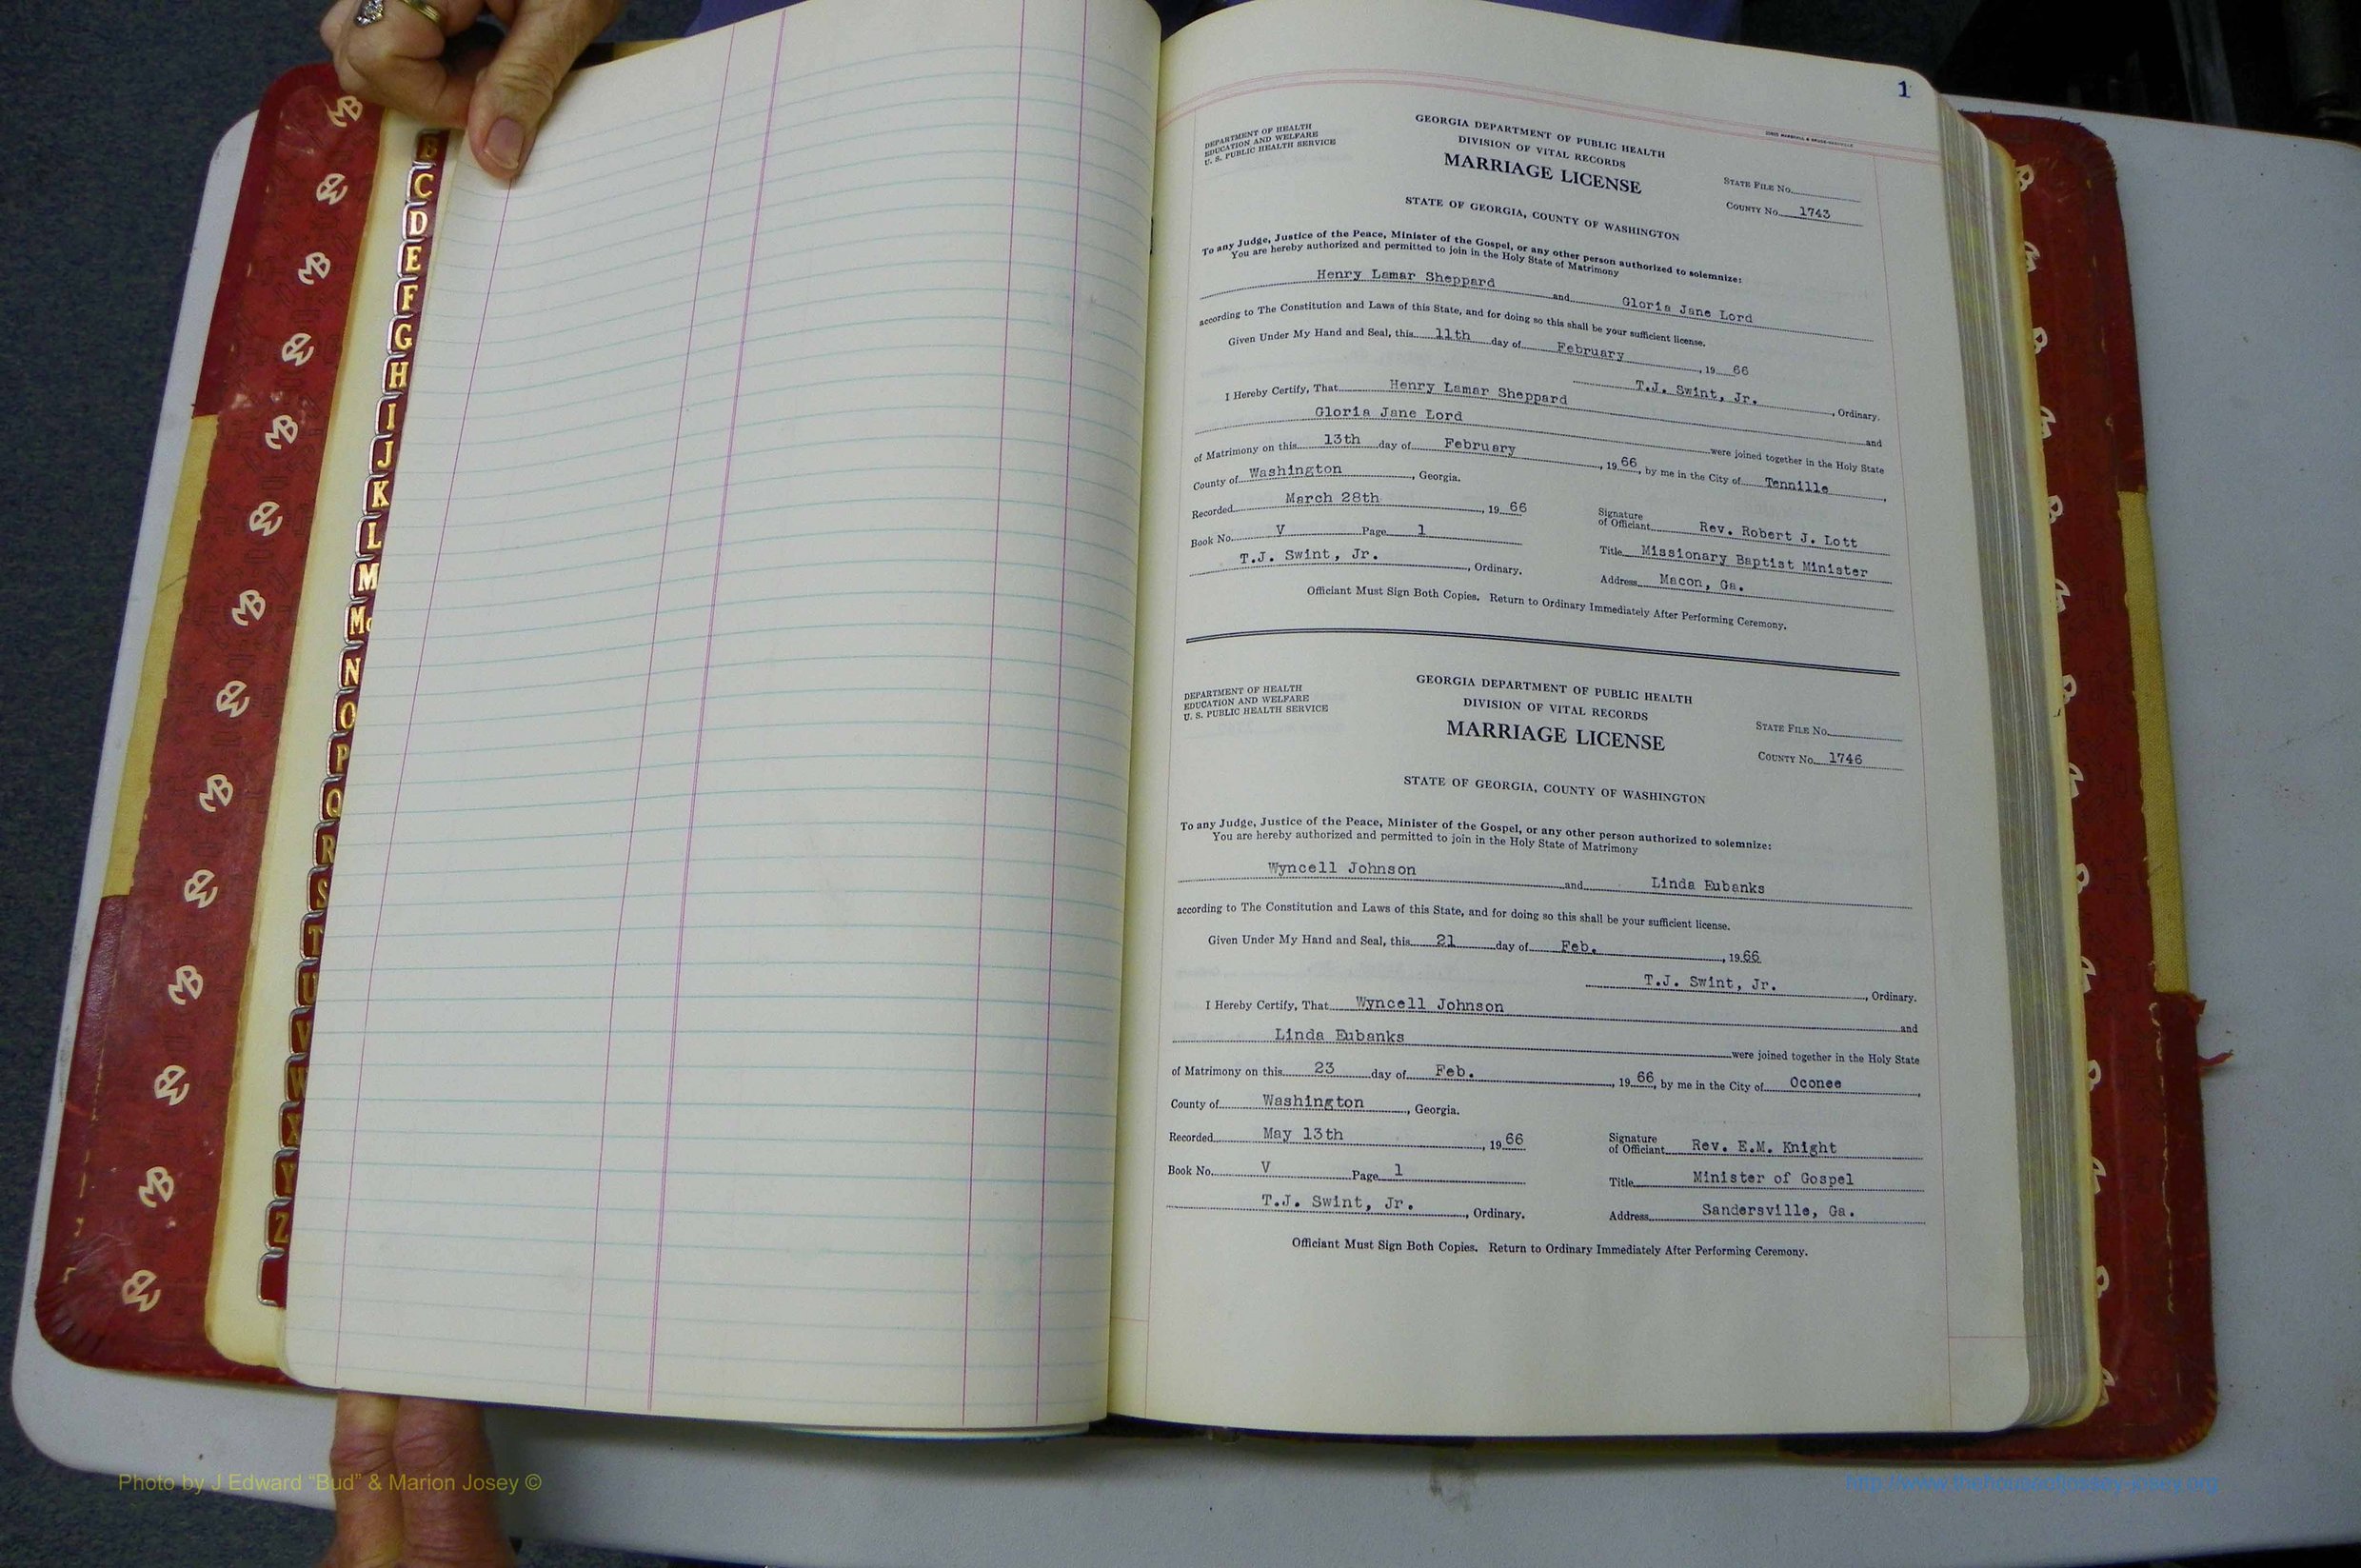 B
C
D
E
F
G
H
I
J
K
L
M
Mc
N
O
P
Q
R
S
T
U
V
W
X
Y
Z
1
DEPARTMENT OF HEALTH
EDUCATION AND WELFARE
U. S. PUBLIC HEALTH SERVICE
GEORGIA DEPARTMENT OF PUBLIC HEALTH
DIVISION OF VITAL RECORDS
MARRIAGE LICENSE
STATE FILE NO.
COUNTY NO. 1743
STATE OF GEORGIA, COUNTY OF WASHINGTON
To any Judge, Justice of the Peace, Minister of the Gospel, or any other person authorized to solemnize:
You are hereby authorized and permitted to join in the Holy State of Matrimony
Henry Lamar Sheppard and Gloria Jane Lord
according to The Constitution and Laws of this State, and for doing so this shall be your sufficient license.
Given Under My Hand and Seal, this 11th day of February, 19 66
T.J. Swint, Jr., Ordinary.
I Hereby Certify, That Henry Lamar Sheppard and
Gloria Jane Lord were joined together in the Holy State
of Matrimony on this 13th day of February, 19 66, by me in the City of Tennille,
County of Washington, Georgia.
Recorded March 28th, 19 66
Signature
of Officiant Rev. Robert J. Lott
Book No. V Page 1
Title Missionary Baptist Minister
T.J. Swint, Jr., Ordinary.
Address Macon, Ga.
Officiant Must Sign Both Copies. Return to Ordinary Immediately After Performing Ceremony.
DEPARTMENT OF HEALTH
EDUCATION AND WELFARE
U. S. PUBLIC HEALTH SERVICE
GEORGIA DEPARTMENT OF PUBLIC HEALTH
DIVISION OF VITAL RECORDS
MARRIAGE LICENSE
STATE FILE NO.
COUNTY NO. 1746
STATE OF GEORGIA, COUNTY OF WASHINGTON
To any Judge, Justice of the Peace, Minister of the Gospel, or any other person authorized to solemnize:
You are hereby authorized and permitted to join in the Holy State of Matrimony
Wyncell Johnson and Linda Eubanks
according to The Constitution and Laws of this State, and for doing so this shall be your sufficient license.
Given Under My Hand and Seal, this 21 day of Feb., 19 66
T.J. Swint, Jr., Ordinary.
I Hereby Certify, That Wyncell Johnson and
Linda Eubanks were joined together in the Holy State
of Matrimony on this 23 day of Feb., 19 66, by me in the City of Oconee,
County of Washington, Georgia.
Recorded May 13th, 19 66
Signature
of Officiant Rev. E.M. Knight
Book No. V Page 1
Title Minister of Gospel
T.J. Swint, Jr., Ordinary.
Address Sandersville, Ga.
Officiant Must Sign Both Copies. Return to Ordinary Immediately After Performing Ceremony.
Photo by J Edward “Bud” & Marion Josey ©